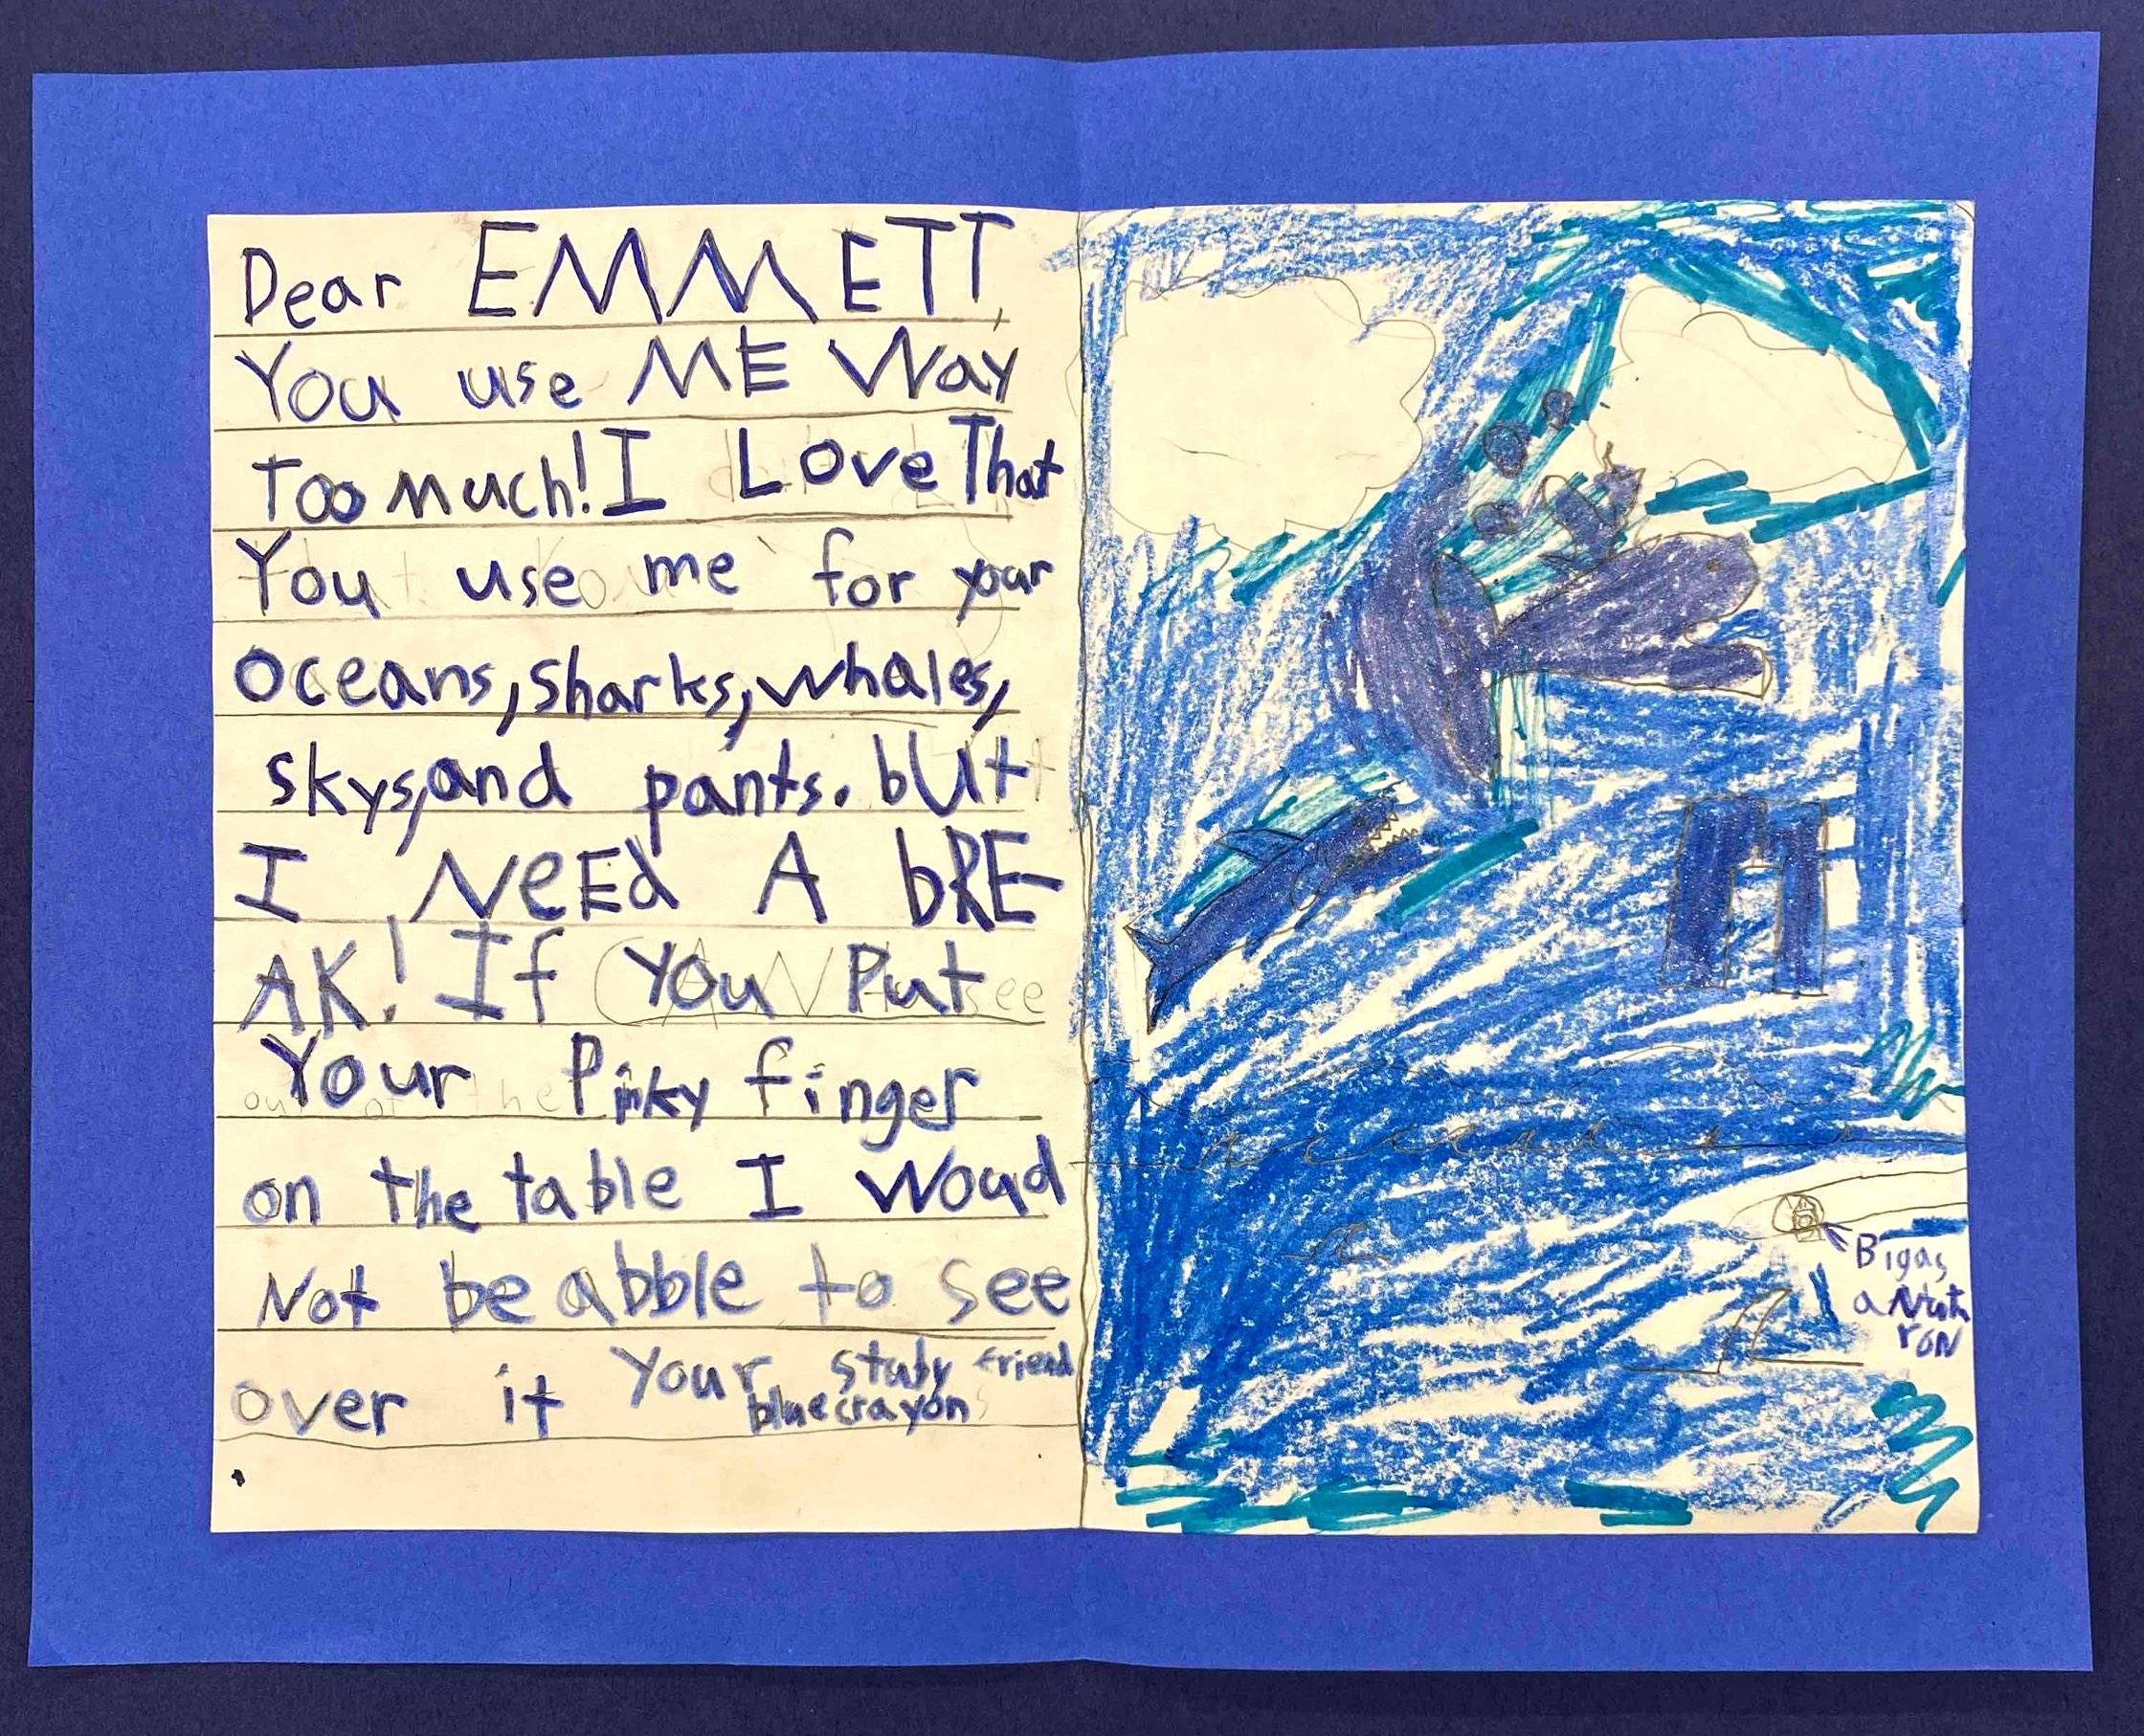 Dear EMMETT,
You use ME Way
Too much! I Love That
You use me for your
oceans, sharks, whales,
skys, and pants. bUt
I NeEd A bRE-
AK! If You Put
Your Pinky finger
on the table I woud
Not be abble to see
over it Your stuby friend
blue crayon
Bigas
a Nutt
roN